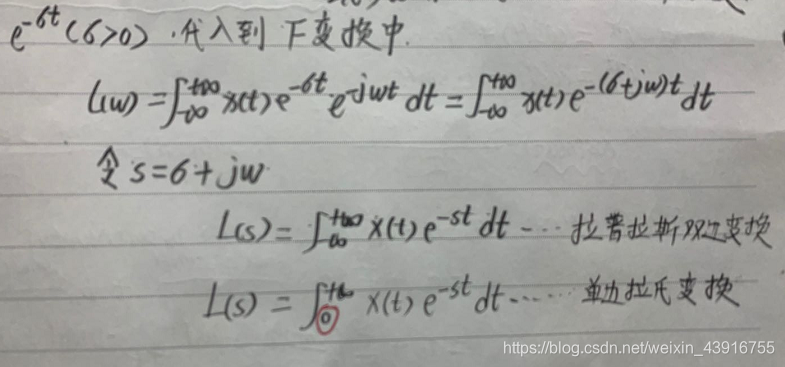 e^{-σt} (σ>0) . 代入到 F变换中.
L(w) = ∫_{-∞}^{+∞} x(t) e^{-σt} · e^{-jwt} dt = ∫_{-∞}^{+∞} x(t) e^{-(σ+jw)t} dt
令 s = σ + jw
L(s) = ∫_{-∞}^{+∞} x(t) e^{-st} dt ···· 拉普拉斯双边变换
L(s) = ∫_{0}^{+∞} x(t) e^{-st} dt ······ 单边拉氏变换
https://blog.csdn.net/weixin_43916755